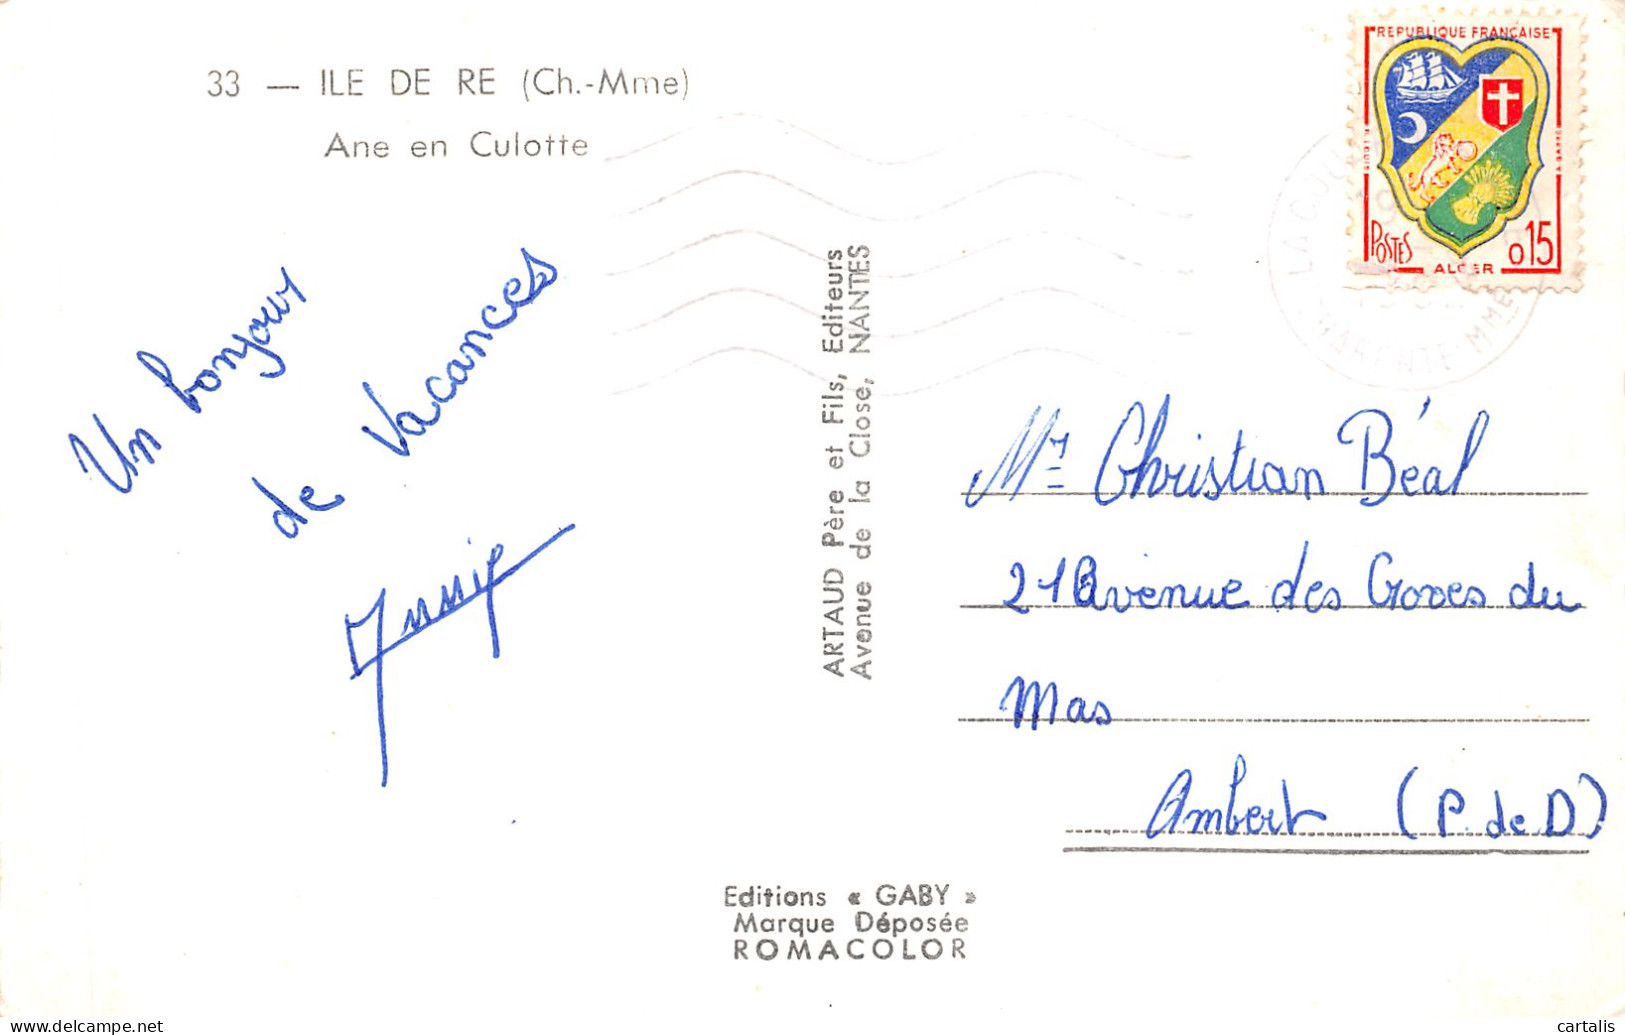 33 — ILE DE RE (Ch.-Mme)
Ane en Culotte
Un bonjour
de vacances
ARTAUD Père et Fils, Editeurs
Avenue de la Close, NANTES
REPUBLIQUE FRANÇAISE
POSTES
0,15
ALGER
LA COU
CHARENTE MME
Mr Christian Béal
21 Avenue des Croves du
Mas
Ambert (P. de D)
Editions « GABY »
Marque Déposée
ROMACOLOR
cartalis
www.delcampe.net